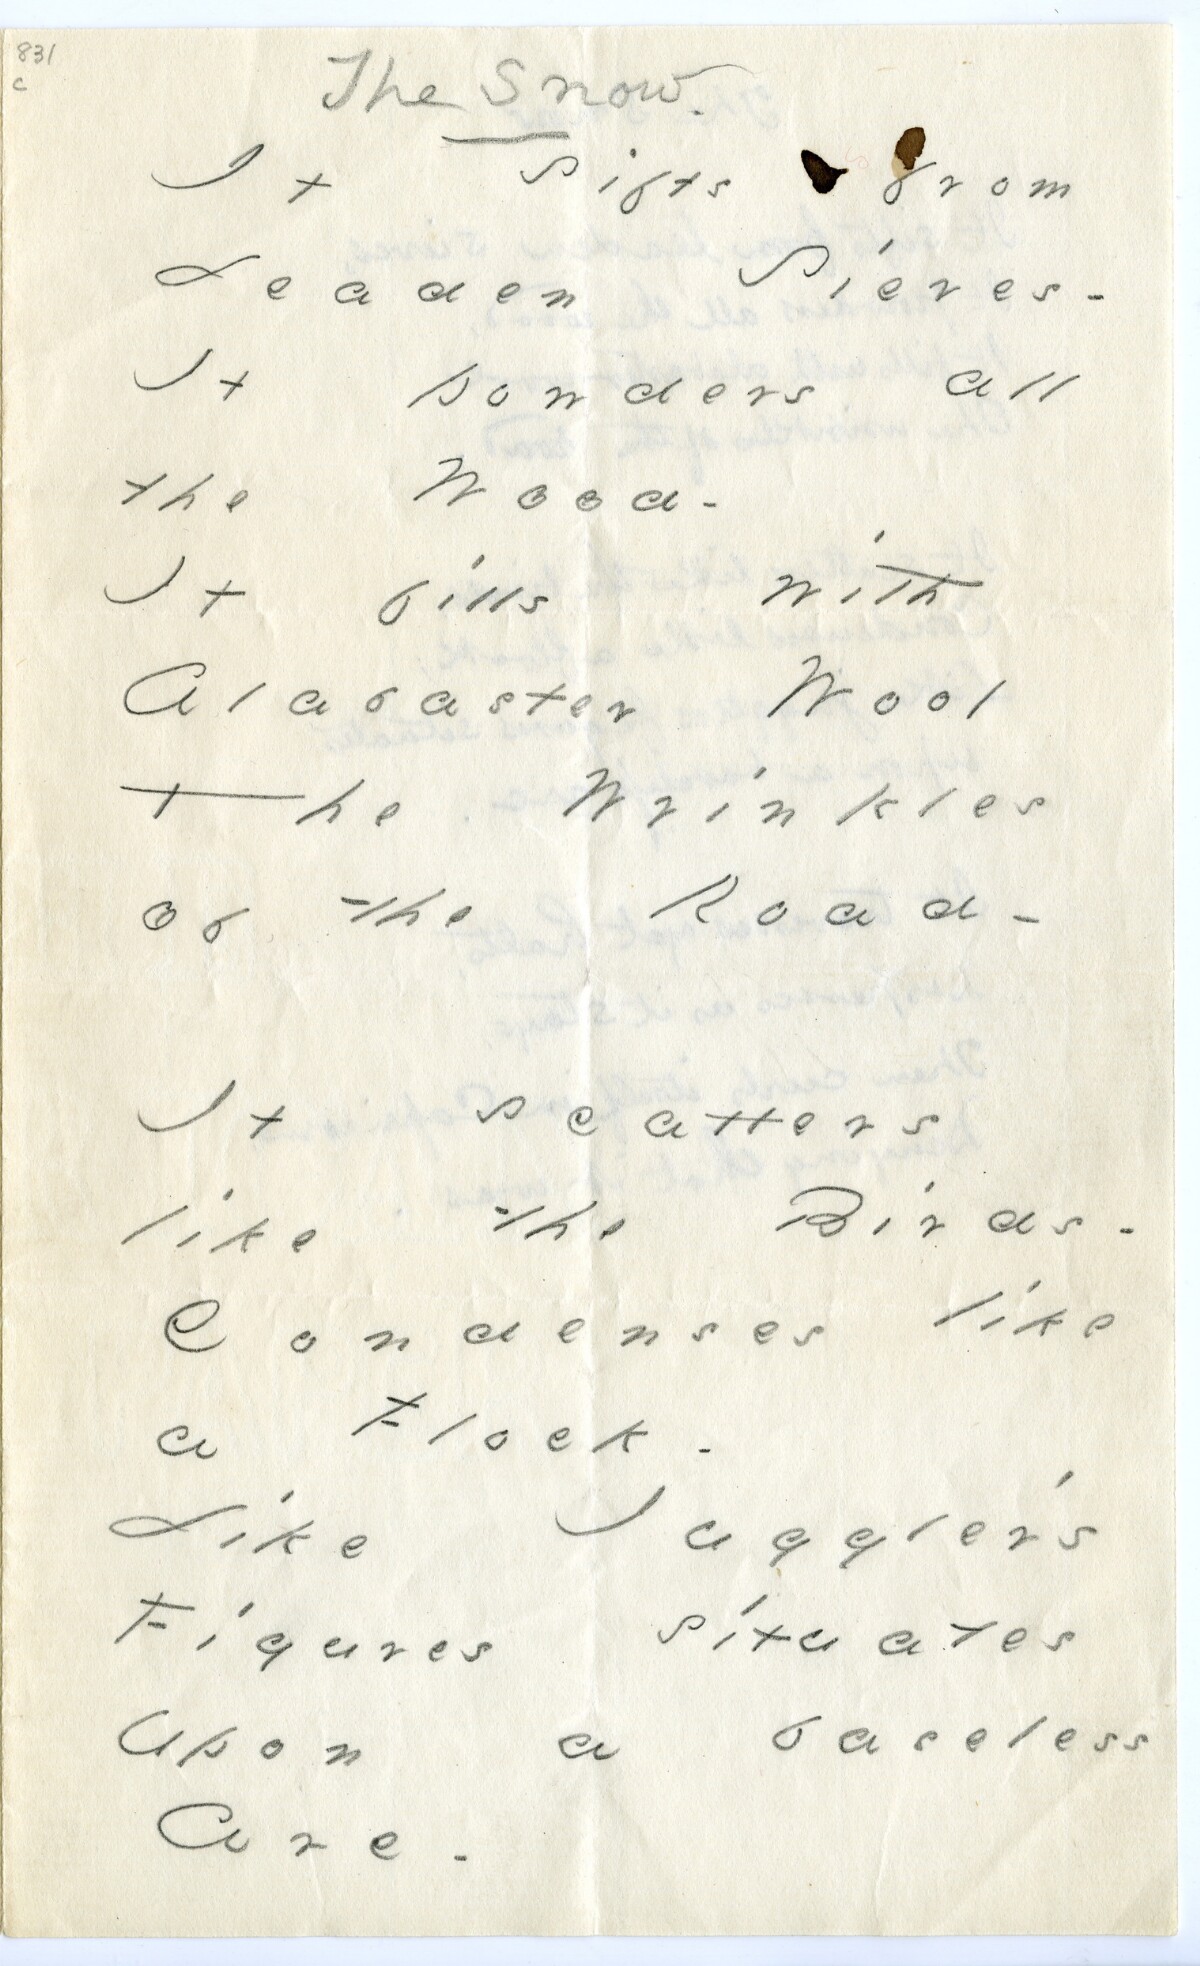 831
c
The Snow.
It sifts from
Leaden Sieves -
It powders all
the Wood -
It fills with
Alabaster Wool
The Wrinkles
of the Road -
It scatters
like the Birds -
Condenses like
a Flock -
Like Juggler's
Figures situates
Upon a baseless
Arc -